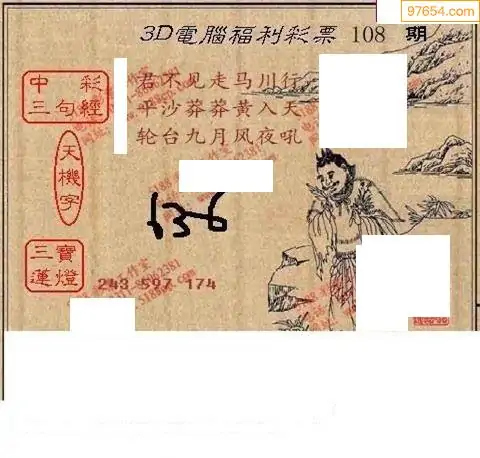 97654.com
3D電腦福利彩票 108 期
中彩
三句經
君不见走马川行
平沙莽莽黄入天
轮台九月风夜吼
天機字
136
三寶
蓮燈
243 597 174